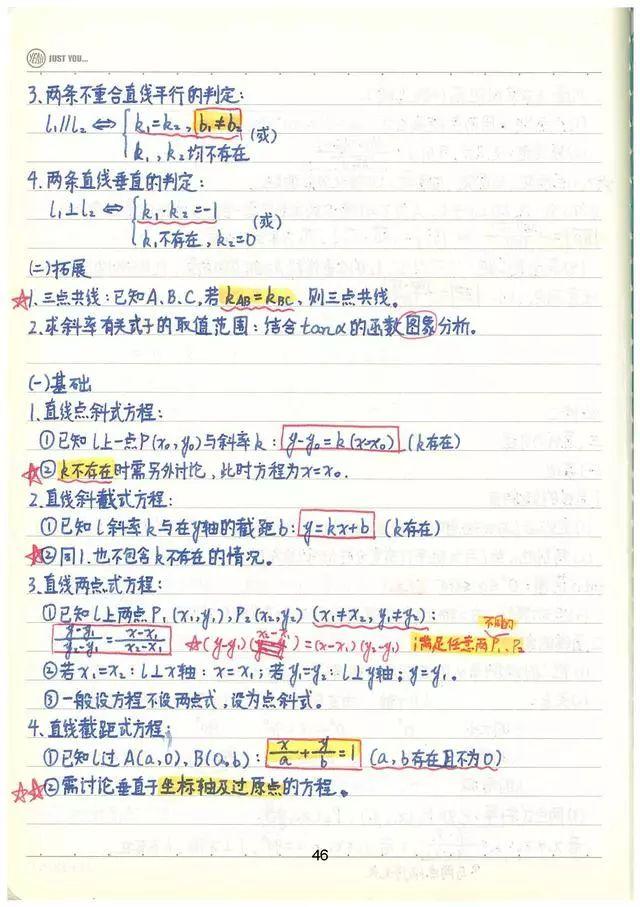 JUST YOU...
3.两条不重合直线平行的判定:
l₁∥l₂ ⇔ { k₁=k₂, b₁≠b₂ (或)
k₁, k₂均不存在
4.两条直线垂直的判定:
l₁⊥l₂ ⇔ { k₁·k₂=-1 (或)
k₁不存在, k₂=0
(二)拓展
☆1.三点共线:已知A、B、C,若k_AB=k_BC,则三点共线。
2.求斜率有关式子的取值范围:结合tanα的函数图象分析。
(一)基础
1.直线点斜式方程:
①已知l上一点P(x₀,y₀)与斜率k: y-y₀=k(x-x₀) (k存在)
☆②k不存在时需另外讨论,此时方程为x=x₀.
2.直线斜截式方程:
①已知l斜率k与在y轴的截距b: y=kx+b (k存在)
☆②同1.也不包含k不存在的情况。
3.直线两点式方程:
①已知l上两点P₁(x₁,y₁),P₂(x₂,y₂) (x₁≠x₂,y₁≠y₂):
不同的
(y-y₁)/(y₂-y₁)=(x-x₁)/(x₂-x₁) ☆(y-y₁)(x₂-x₁)=(x-x₁)(y₂-y₁) 满足任意两P₁、P₂
②若x₁=x₂:l⊥x轴:x=x₁;若y₁=y₂:l⊥y轴;y=y₁。
③一般设方程不设两点式,设为点斜式。
4.直线截距式方程:
①已知l过A(a,0),B(0,b): x/a+y/b=1 (a,b存在且不为0)
☆☆②需讨论垂直于坐标轴及过原点的方程。
46